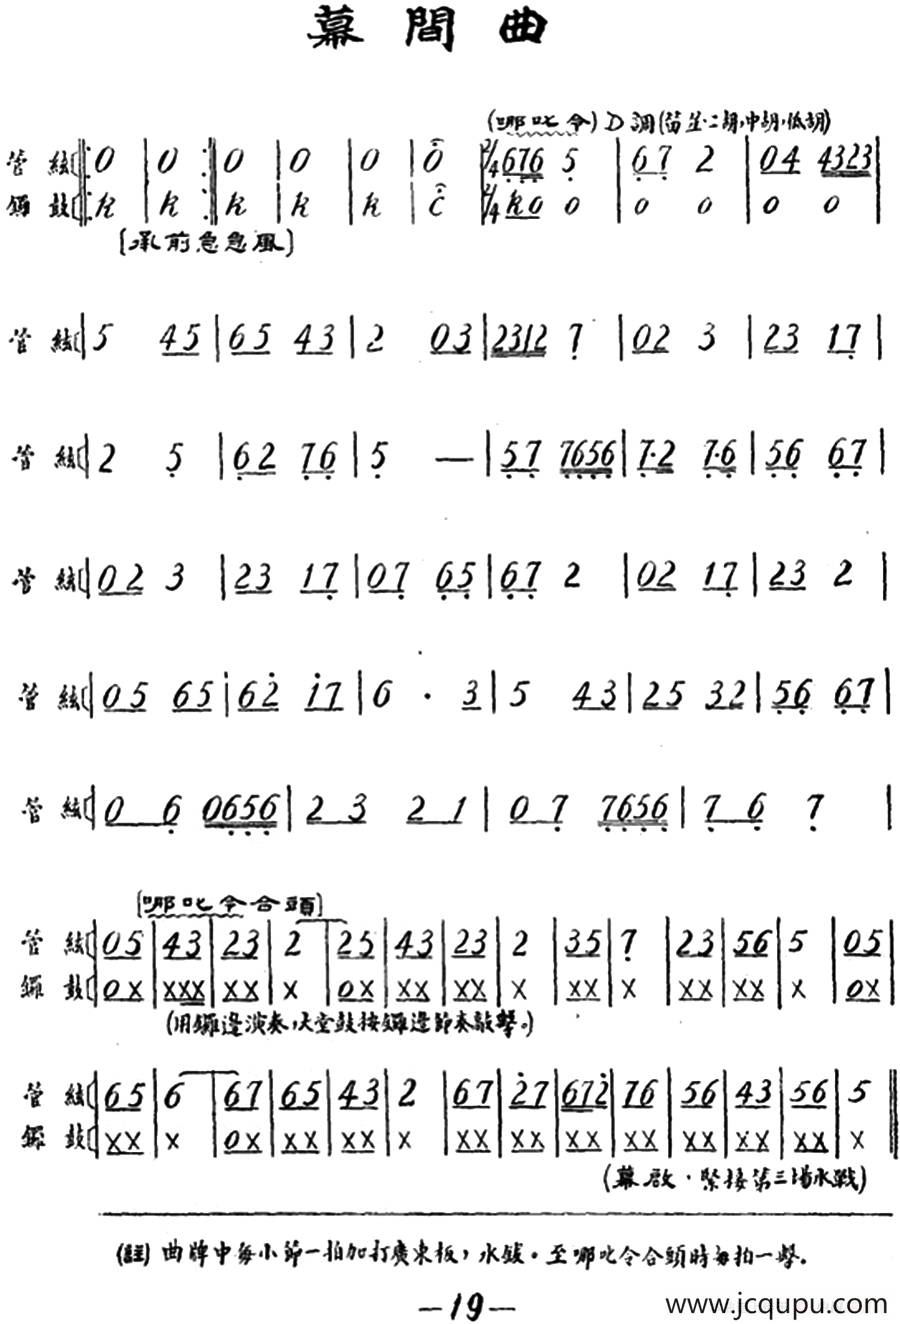 幕間曲
(哪叱令) D調(笛笙·二胡·中胡·低胡)
管絃 0 | 0 | 0 | 0 | 0 | 0 | 2/4 676 5 | 67 2 | 04 4323 |
鑼鼓 k | k | k | k | k | c | 2/4 k0 0 | 0 0 | 0 0 |
〔承前急急風〕
管絃 5 45 | 65 43 | 2 03 | 2312 7 | 02 3 | 23 17 |
管絃 2 5 | 62 76 | 5 — | 57 7656 | 7·2 7·6 | 56 67 |
管絃 02 3 | 23 17 | 07 65 | 67 2 | 02 17 | 23 2 |
管絃 05 65 | 62 17 | 6 · 3 | 5 43 | 25 32 | 56 67 |
管絃 0 6 0656 | 2 3 2 1 | 0 7 7656 | 7 6 7 |
〔哪叱令合頭〕
管絃 05 | 43 | 23 | 2 | 25 | 43 | 23 | 2 | 35 | 7 | 23 | 56 | 5 | 05 |
鑼鼓 0X | XXX | XX | X | 0X | XX | XX | X | XX | X | XX | XX | X | 0X |
(用鑼邊演奏,大堂鼓按鑼邊節奏敲擊。)
管絃 65 | 6 | 67 | 65 | 43 | 2 | 67 | 27 | 672 | 76 | 56 | 43 | 56 | 5 ‖
鑼鼓 XX | X | 0X | XX | XX | X | XX | XX | XX | XX | XX | XX | XX | X ‖
(幕啟·緊接第三場水戰)
(註) 曲牌中每小節一拍加打廣東板,水鈸。至哪叱令合頭時每拍一擊。
—19—
www.jcqupu.com